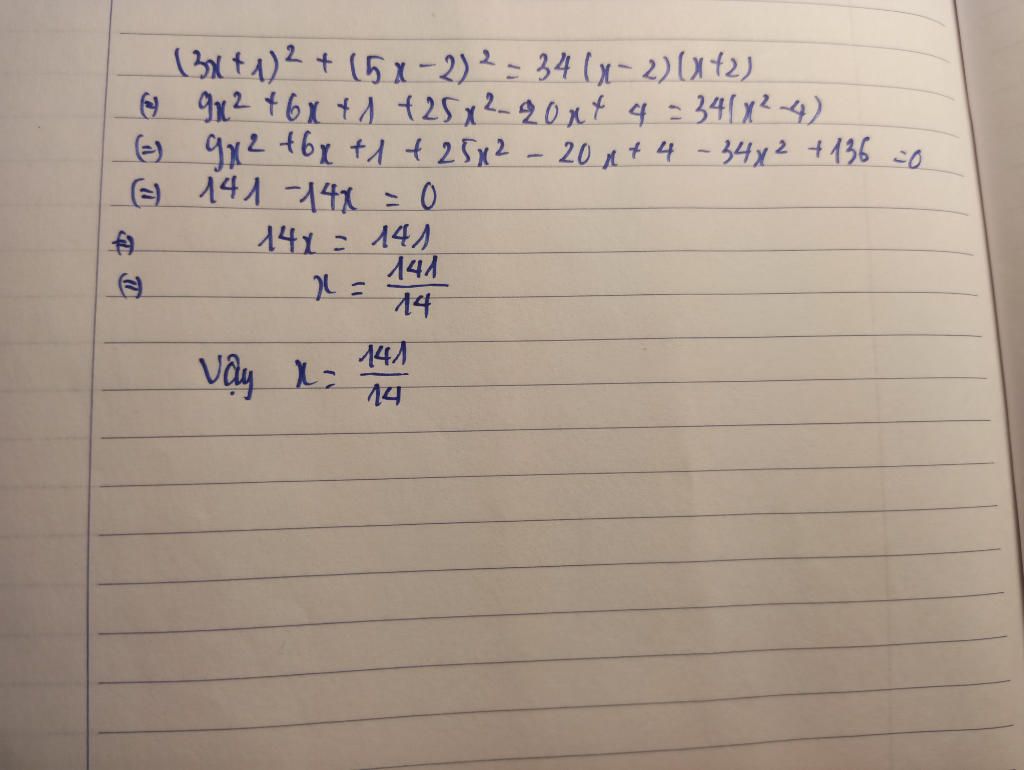 (3x+1)² + (5x-2)² = 34(x-2)(x+2)
(=) 9x² + 6x + 1 + 25x² - 20x + 4 = 34(x²-4)
(=) 9x² + 6x + 1 + 25x² - 20x + 4 - 34x² + 136 = 0
(=) 141 - 14x = 0
(=) 14x = 141
(=) x = 141/14
Vậy x = 141/14